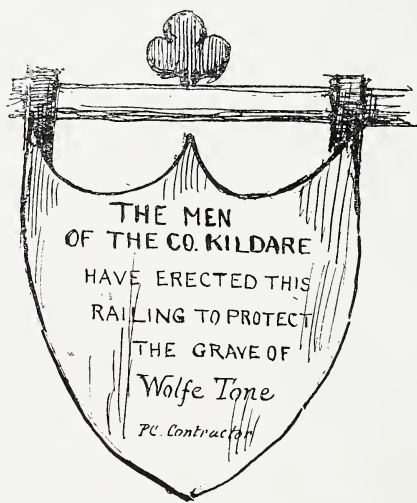 THE MEN
OF THE CO. KILDARE
HAVE ERECTED THIS
RAILING TO PROTECT
THE GRAVE OF
Wolfe Tone
PC. Contractor